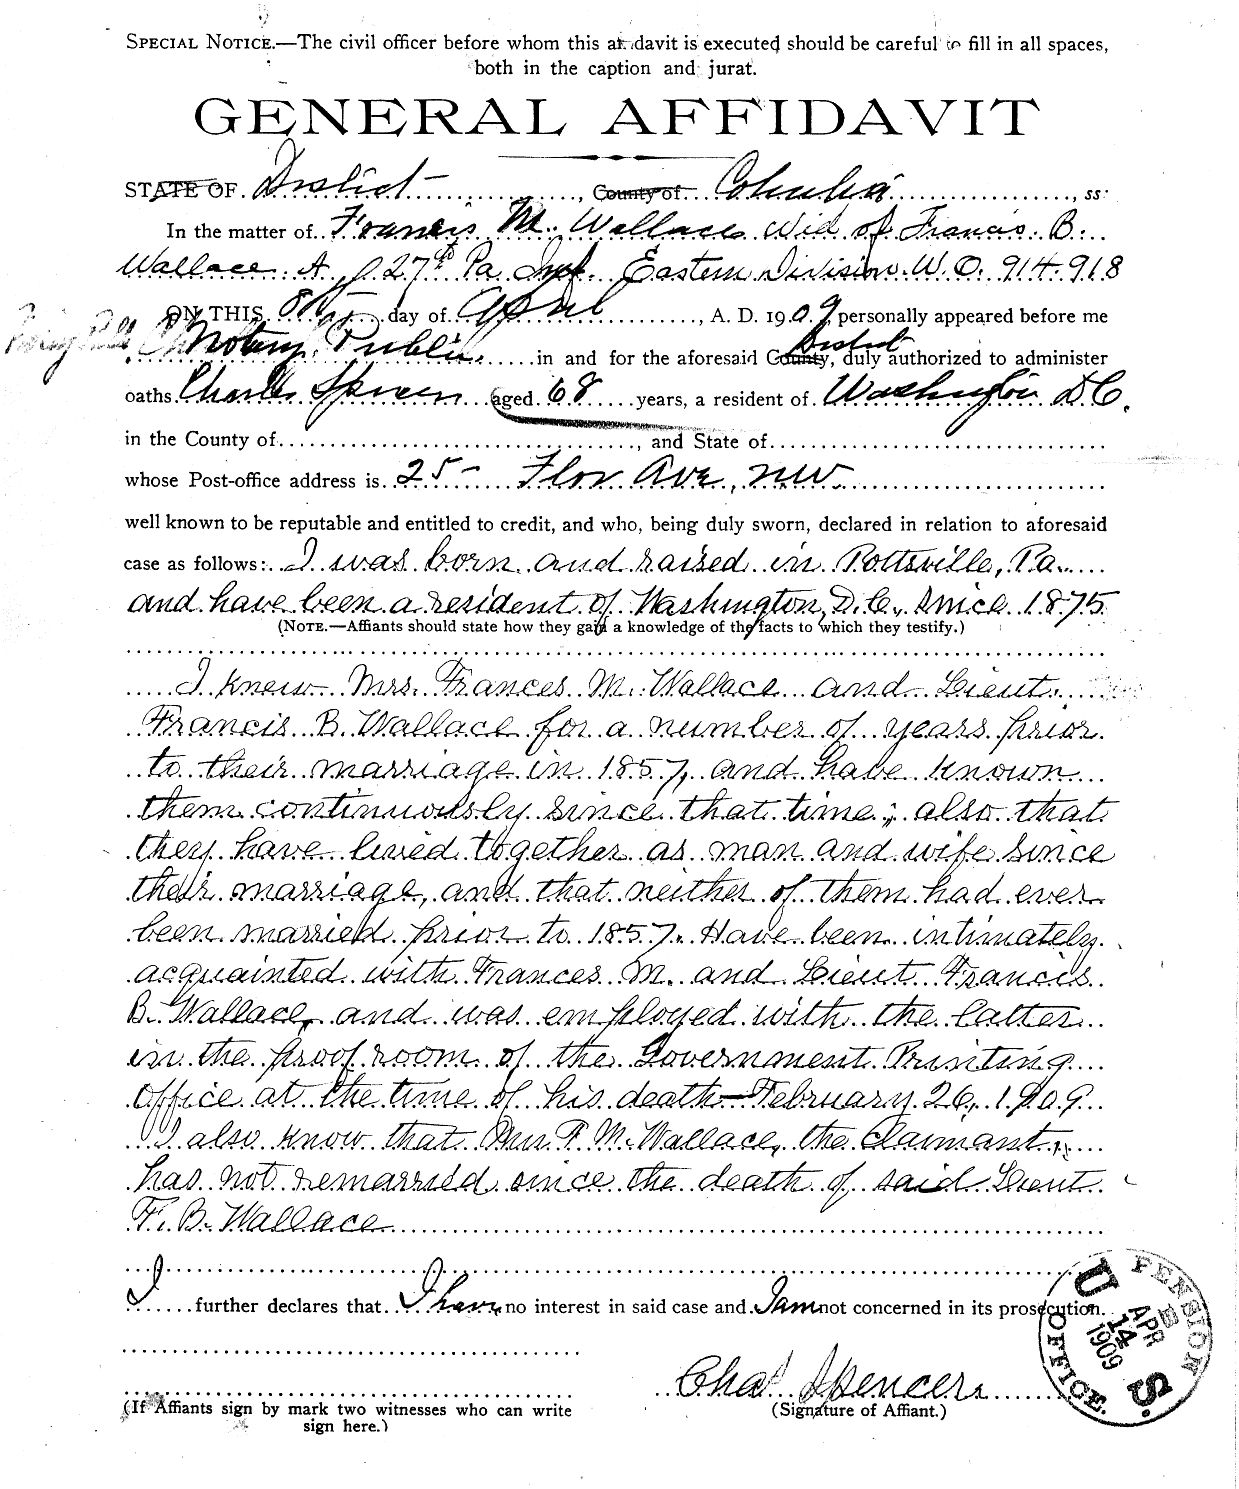 SPECIAL NOTICE.—The civil officer before whom this affidavit is executed should be careful to fill in all spaces,
both in the caption and jurat.
GENERAL AFFIDAVIT
STATE OF District, County of Columbia, ss:
In the matter of Frances M. Wallace Wid of Francis B.
Wallace A, 127th Pa Inf. Eastern Division W.O. 914.918
ON THIS 8th day of April, A. D. 1909, personally appeared before me
Notary Public in and for the aforesaid County, District duly authorized to administer
oaths Charles Spencer aged 68 years, a resident of Washington D.C.
in the County of, and State of
whose Post-office address is 25 - Flor Ave, NW.
well known to be reputable and entitled to credit, and who, being duly sworn, declared in relation to aforesaid
case as follows: I was born and raised in Pottsville, Pa.
and have been a resident of Washington, D.C., since 1875
(NOTE.—Affiants should state how they gain a knowledge of the facts to which they testify.)
I knew Mrs. Frances M. Wallace and Lieut.
Francis B. Wallace for a number of years prior
to their marriage in 1857, and have known
them continuously since that time; also that
they have lived together as man and wife since
their marriage, and that neither of them had ever
been married prior to 1857. Have been intimately
acquainted with Frances M. and Lieut Francis
B. Wallace, and was employed with the latter
in the proof room of the Government Printing
Office at the time of his death—February 26, 1909.
I also know that Mrs F. M. Wallace, the Claimant,
has not remarried since the death of said Lieut
F. B. Wallace
I further declares that I have no interest in said case and I am not concerned in its prosecution.
U. S. PENSION OFFICE.
APR 14 1909
Chas Spencer
(If Affiants sign by mark two witnesses who can write
sign here.)
(Signature of Affiant.)